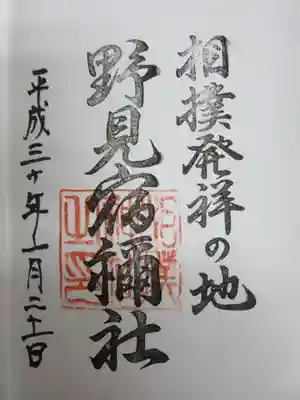 相撲発祥の地
野見宿禰社
平成三十年一月二十一日